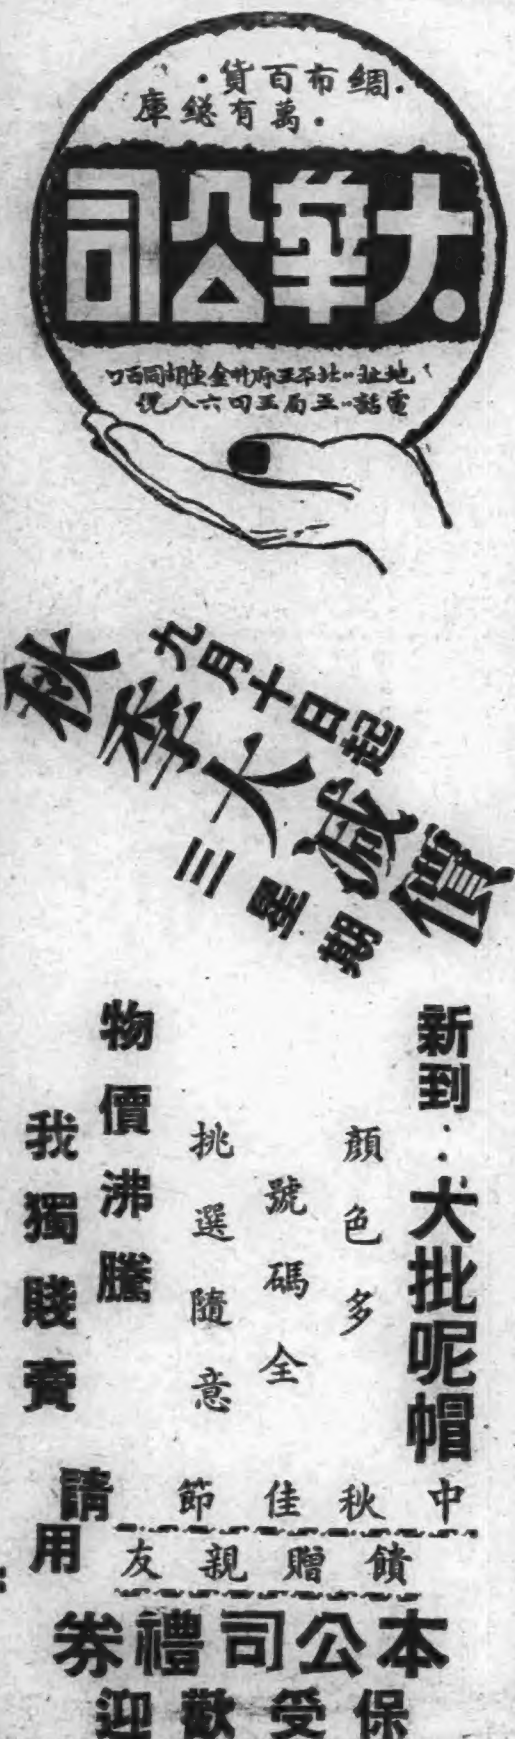 綢布百貨
萬有總庫
大華公司
地址‥北平王府井金魚胡同西口
電話‥五局五四六八號
九月十日起
秋季大減價
三星期
新到‥大批呢帽
顏色多
號碼全
挑選隨意
物價沸騰
我獨賤賣
中秋佳節
饋贈親友
請用
本公司禮券
保受歡迎